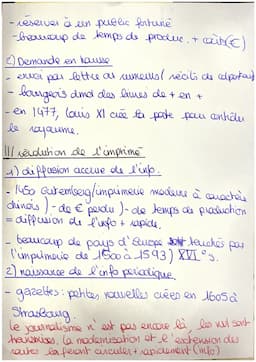 - réserver à un public fortuné
- beaucoup de temps de produc. + coûts (€)
c) Demande en hausse
- envoi par lettre ou rumeurs / récits de colporteurs
- bourgeois dmd des livres de + en +
- en 1477, Louis XI crée la poste pour contrôler
le royaume.
II/ révolution de l'imprimé
1) diffusion accrue de l'info.
- 1450 Gutenberg/imprimerie moderne à caractères
chinois) - de € perdu) - de temps de production
= diffusion de l'info + rapide.
- beaucoup de pays d'Europe touchés par
l'imprimerie de 1500 à 1593) XVI° s.
2) naissance de l'info périodique.
- gazettes : petites nouvelles créées en 1605 à
Strasbourg.
Le journalisme n'est pas encore là, les nvl sont
la modernisation et l'extension des
routes les feront circuler + rapidement (info)